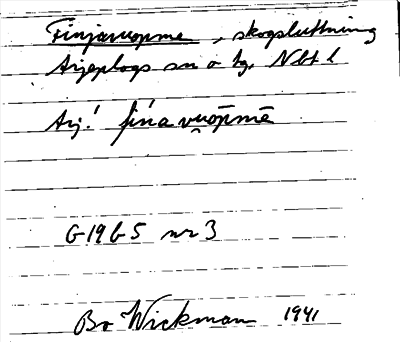 Finjavuopme, skogsluttning
Arjeplogs sn o tg. Nbt l
Arj! fińa vu̯ōpmē
G19 b5 nr 3
Bo Wickman 1941